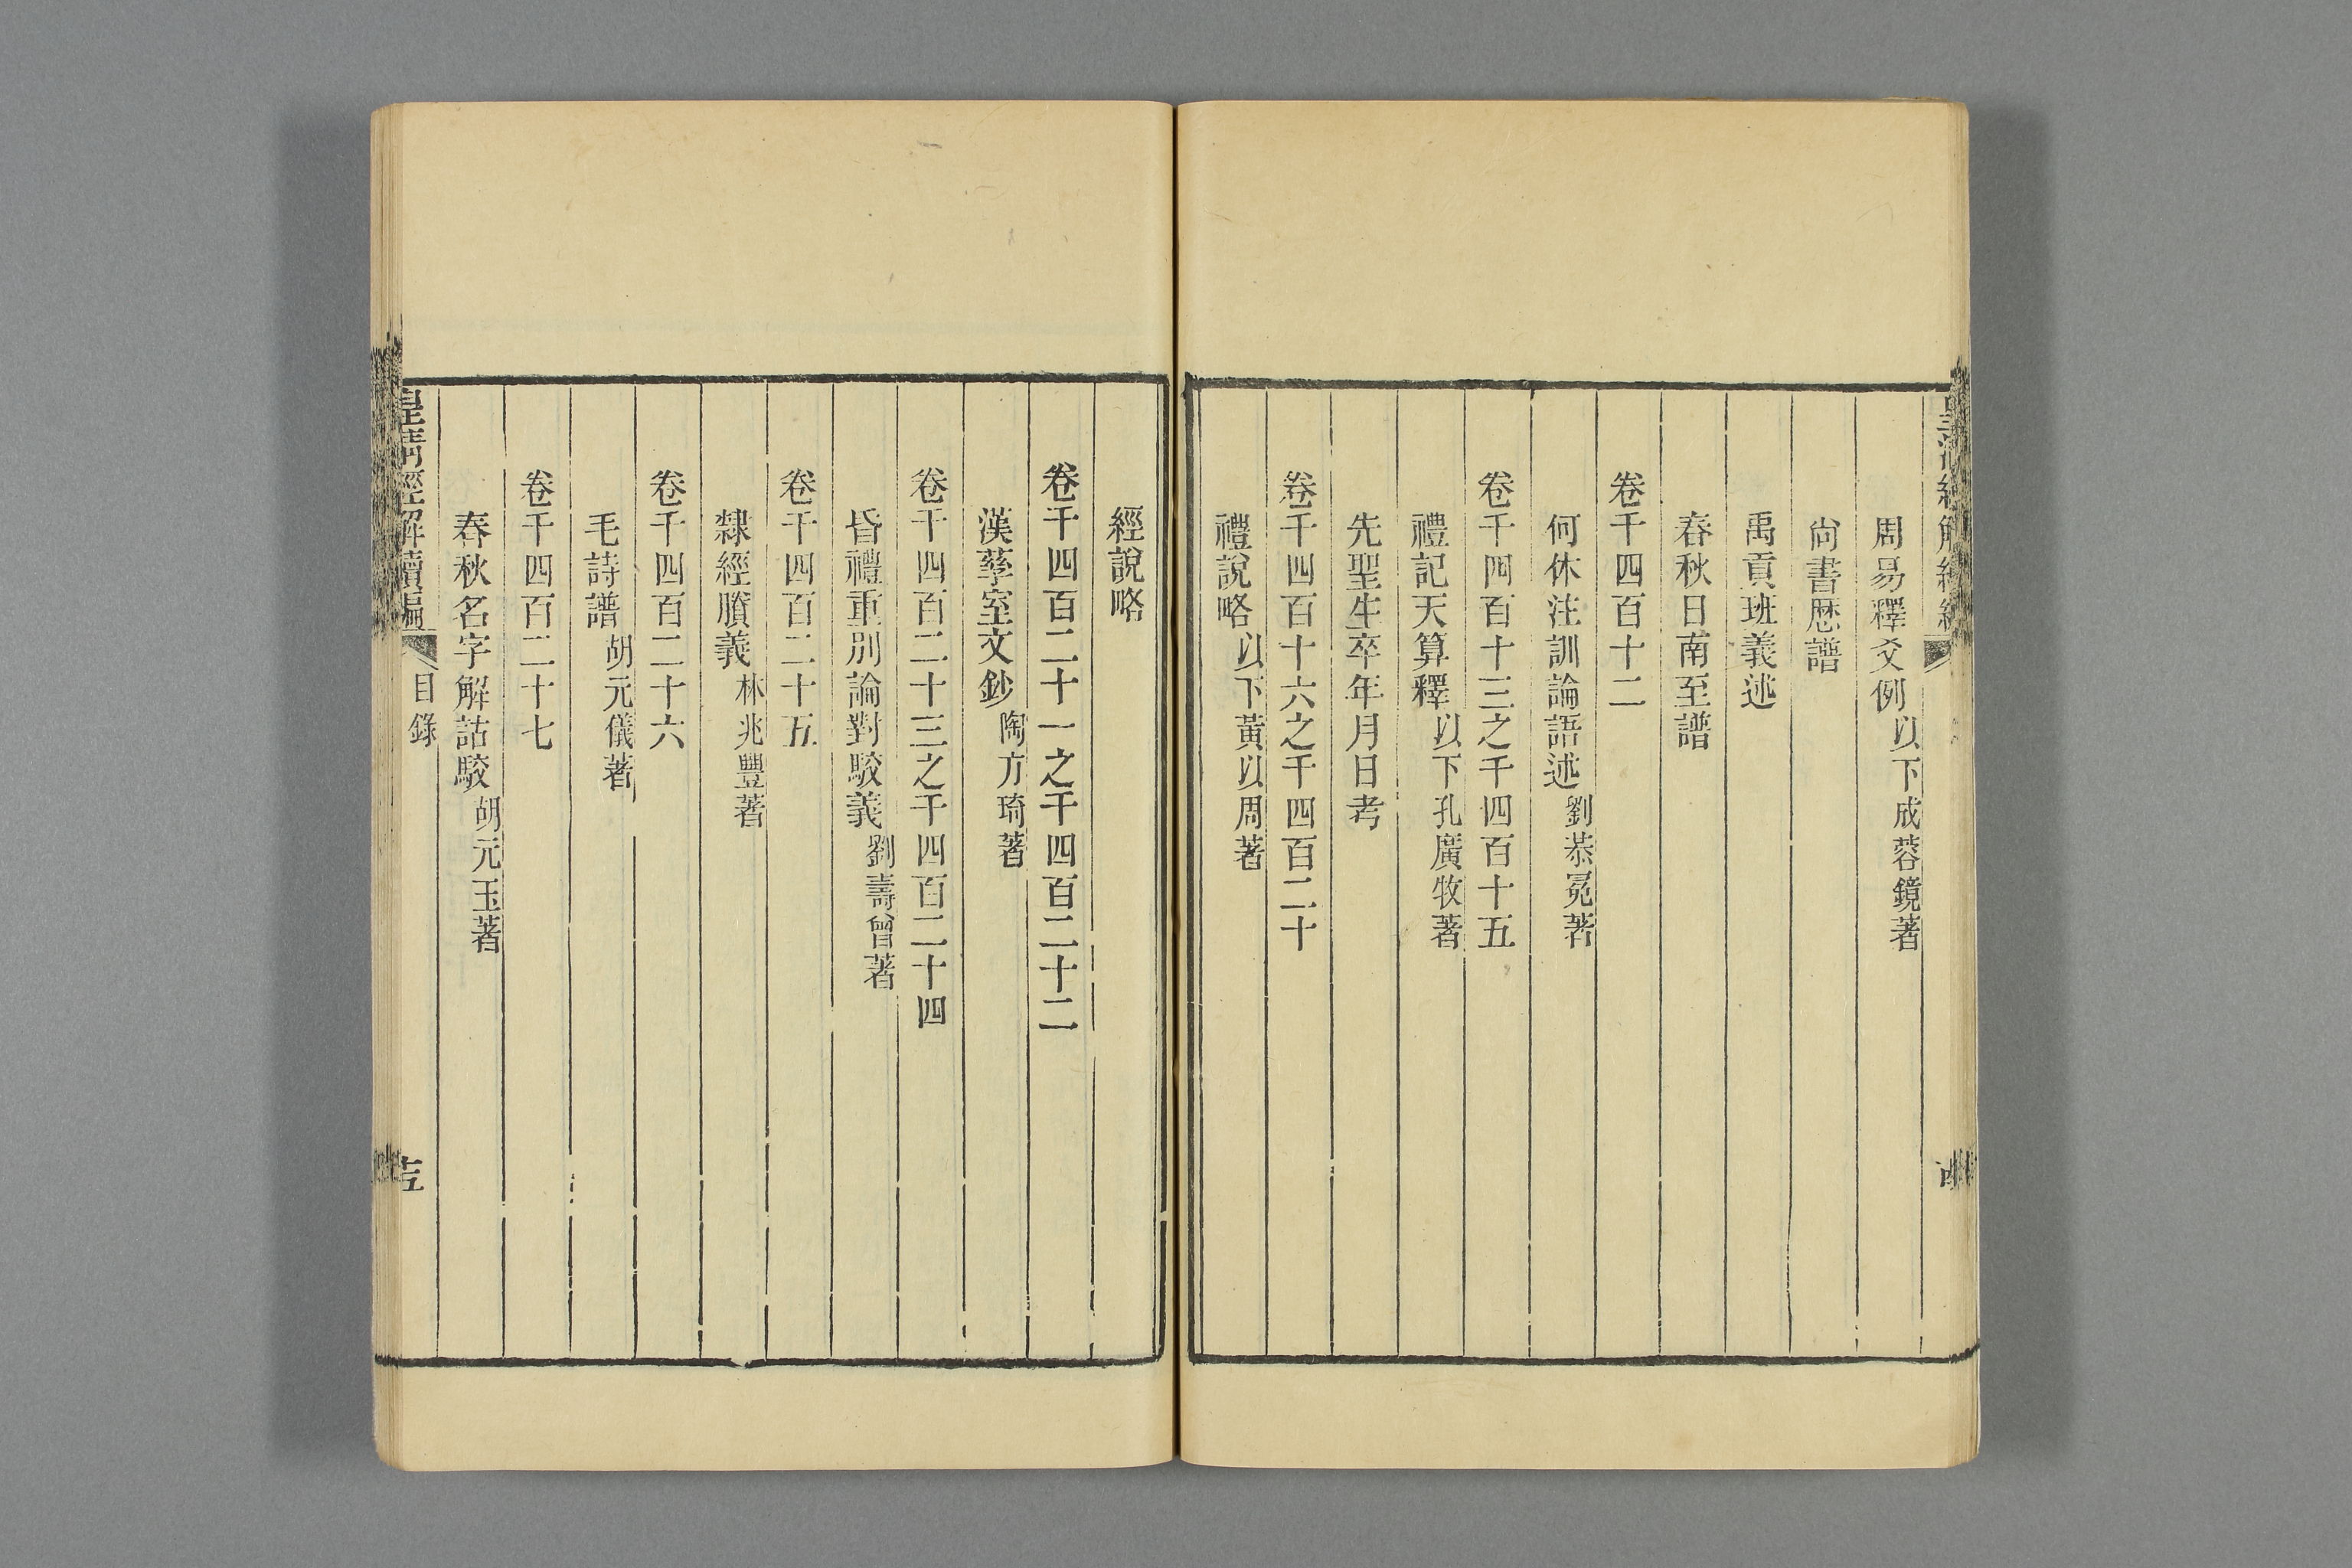 周易釋爻例以下成蓉鏡著
尙書厯譜
禹貢班義述
春秋日南至譜
卷千四百十二
何休注訓論語述劉恭冕著
卷千四百十三之千四百十五
禮記天算釋以下孔廣牧著
先聖生卒年月日考
卷千四百十六之千四百二十
禮說略以下黃以周著
經說略
卷千四百二十一之千四百二十二
漢孳室文鈔陶方琦著
卷千四百二十三之千四百二十四
昏禮重別論對駮義劉壽曾著
卷千四百二十五
隸經賸義林兆豐著
卷千四百二十六
毛詩譜胡元儀著
卷千四百二十七
春秋名字解詁駮胡元玉著
皇淸經解續編 目錄